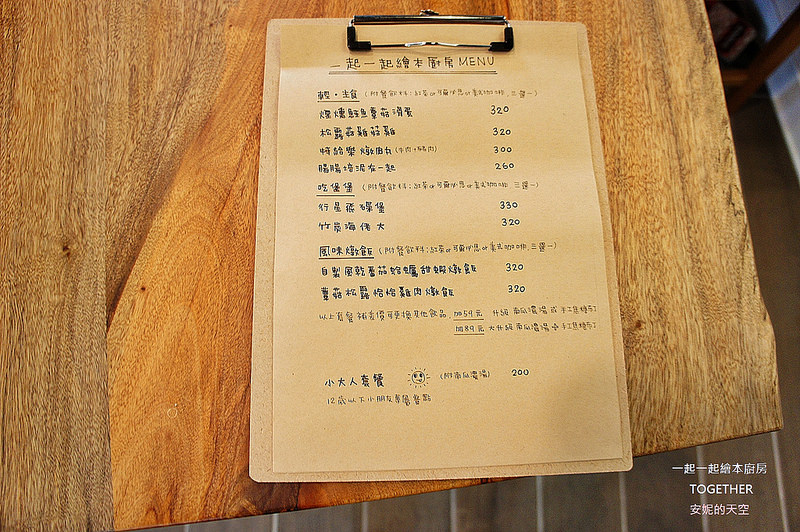 一起一起繪本廚房 MENU
輕・主食 (附餐飲料:紅茶or可爾必思or美式咖啡,三選一)
煙燻鮭魚蘑菇滑蛋 320
松露菇菇雞 320
燉肉丸 (牛肉+豬肉) 300
腸腸培泥在一起 260
吃堡堡 (附餐飲料:紅茶or可爾必思or美式咖啡,三選一)
行星飛碟堡 330
竹炭海佬大 320
風味燉飯 (附餐飲料:紅茶or可爾必思or美式咖啡,三選一)
自製風乾番茄蛤蠣甜蝦燉飯 320
蘑菇松露恰恰雞肉燉飯 320
以上套餐補差價可更換其他飲品,加59元 升級 南瓜濃湯 或 手工焦糖布丁
加89元 大升級 南瓜濃湯 + 手工焦糖布丁
小大人套餐 (附南瓜濃湯) 200
12歲以下小朋友專屬餐點
一起一起繪本廚房
TOGETHER
安妮的天空